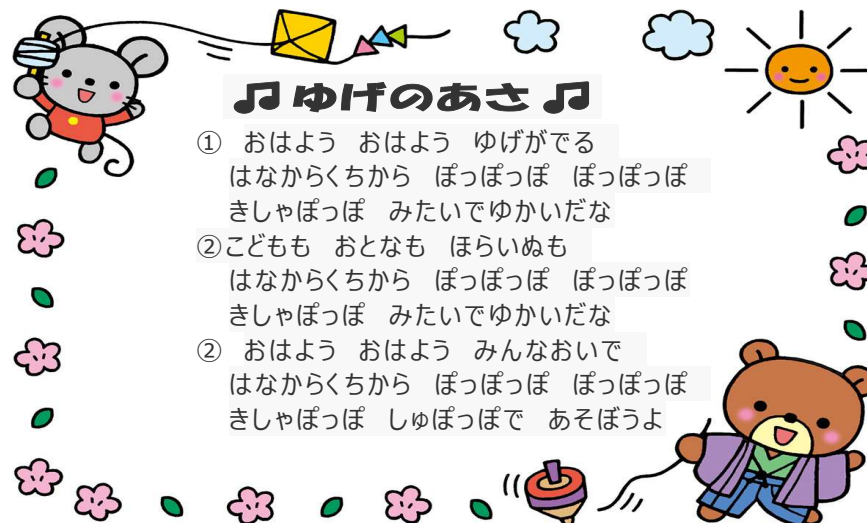 ♫ ゆげのあさ ♫
① おはよう おはよう ゆげがでる
はなからくちから ぽっぽっぽ ぽっぽっぽ
きしゃぽっぽ みたいでゆかいだな
②こどもも おとなも ほらいぬも
はなからくちから ぽっぽっぽ ぽっぽっぽ
きしゃぽっぽ みたいでゆかいだな
② おはよう おはよう みんなおいで
はなからくちから ぽっぽっぽ ぽっぽっぽ
きしゃぽっぽ しゅぽっぽで あそぼうよ